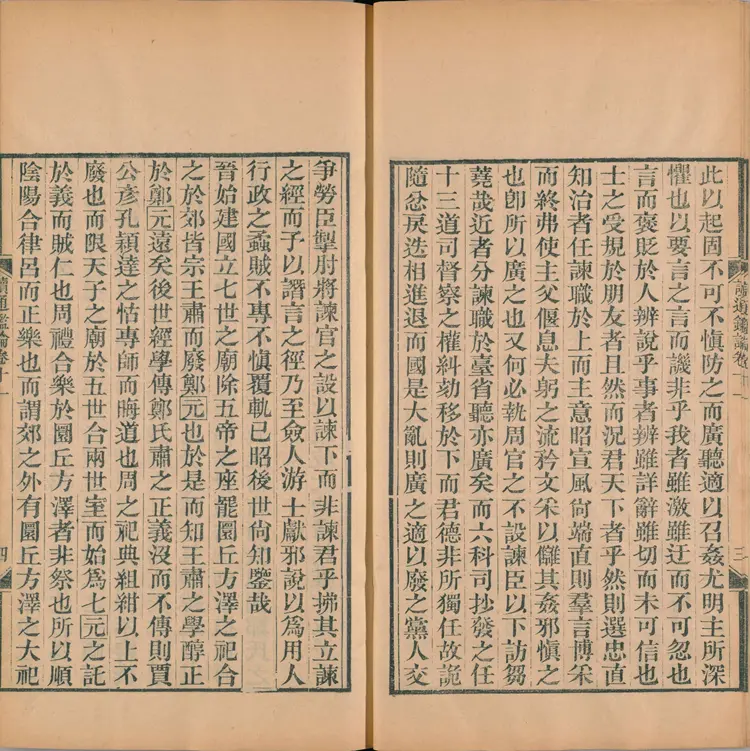 此以起固不可不慎防之而廣聽適以召姦尤明主所深
懼也以要言之言而譏非乎我者雖激雖迂而不可忽也
言而褒貶於人辨說乎事者辨雖詳辭雖切而未可信也
士之受規於朋友者且然而況君天下者乎然則選忠直
知治者任諫職於上而主意昭宣風尙端直則羣言博采
而終弗使主父偃息夫躬之流矜文采以讎其姦邪愼之
也卽所以廣之也又何必執周官之不設諫臣以下訪芻
蕘哉近者分諫職於臺省聽亦廣矣而六科司抄發之任
十三道司督察之權糾劾移於下而君德非所獨任故詭
隨忿戾迭相進退而國是大亂則廣之適以廢之黨人交
讀通鑑論卷十一
三
爭勞臣掣肘將諫官之設以諫下而非諫君乎拂其立諫
之經而予以譖言之徑乃至僉人游士獻邪說以爲用人
行政之蟊賊不專不愼覆軌已昭後世尙知鑒哉
晉始建國立七世之廟除五帝之座罷圜丘方澤之祀合
之於郊皆宗王肅而廢鄭元也於是而知王肅之學醇正
於鄭元遠矣後世經學傳鄭氏肅之正義沒而不傳則賈
公彥孔穎達之怙專師而晦道也周之祀典組紺以上不
廢也而限天子之廟於五世合兩世室而始爲七元之託
於義而賊仁也周禮合樂於圜丘方澤者非祭也所以順
陰陽合律呂而正樂也而謂郊之外有圜丘方澤之大祀
讀通鑑論卷十一
四